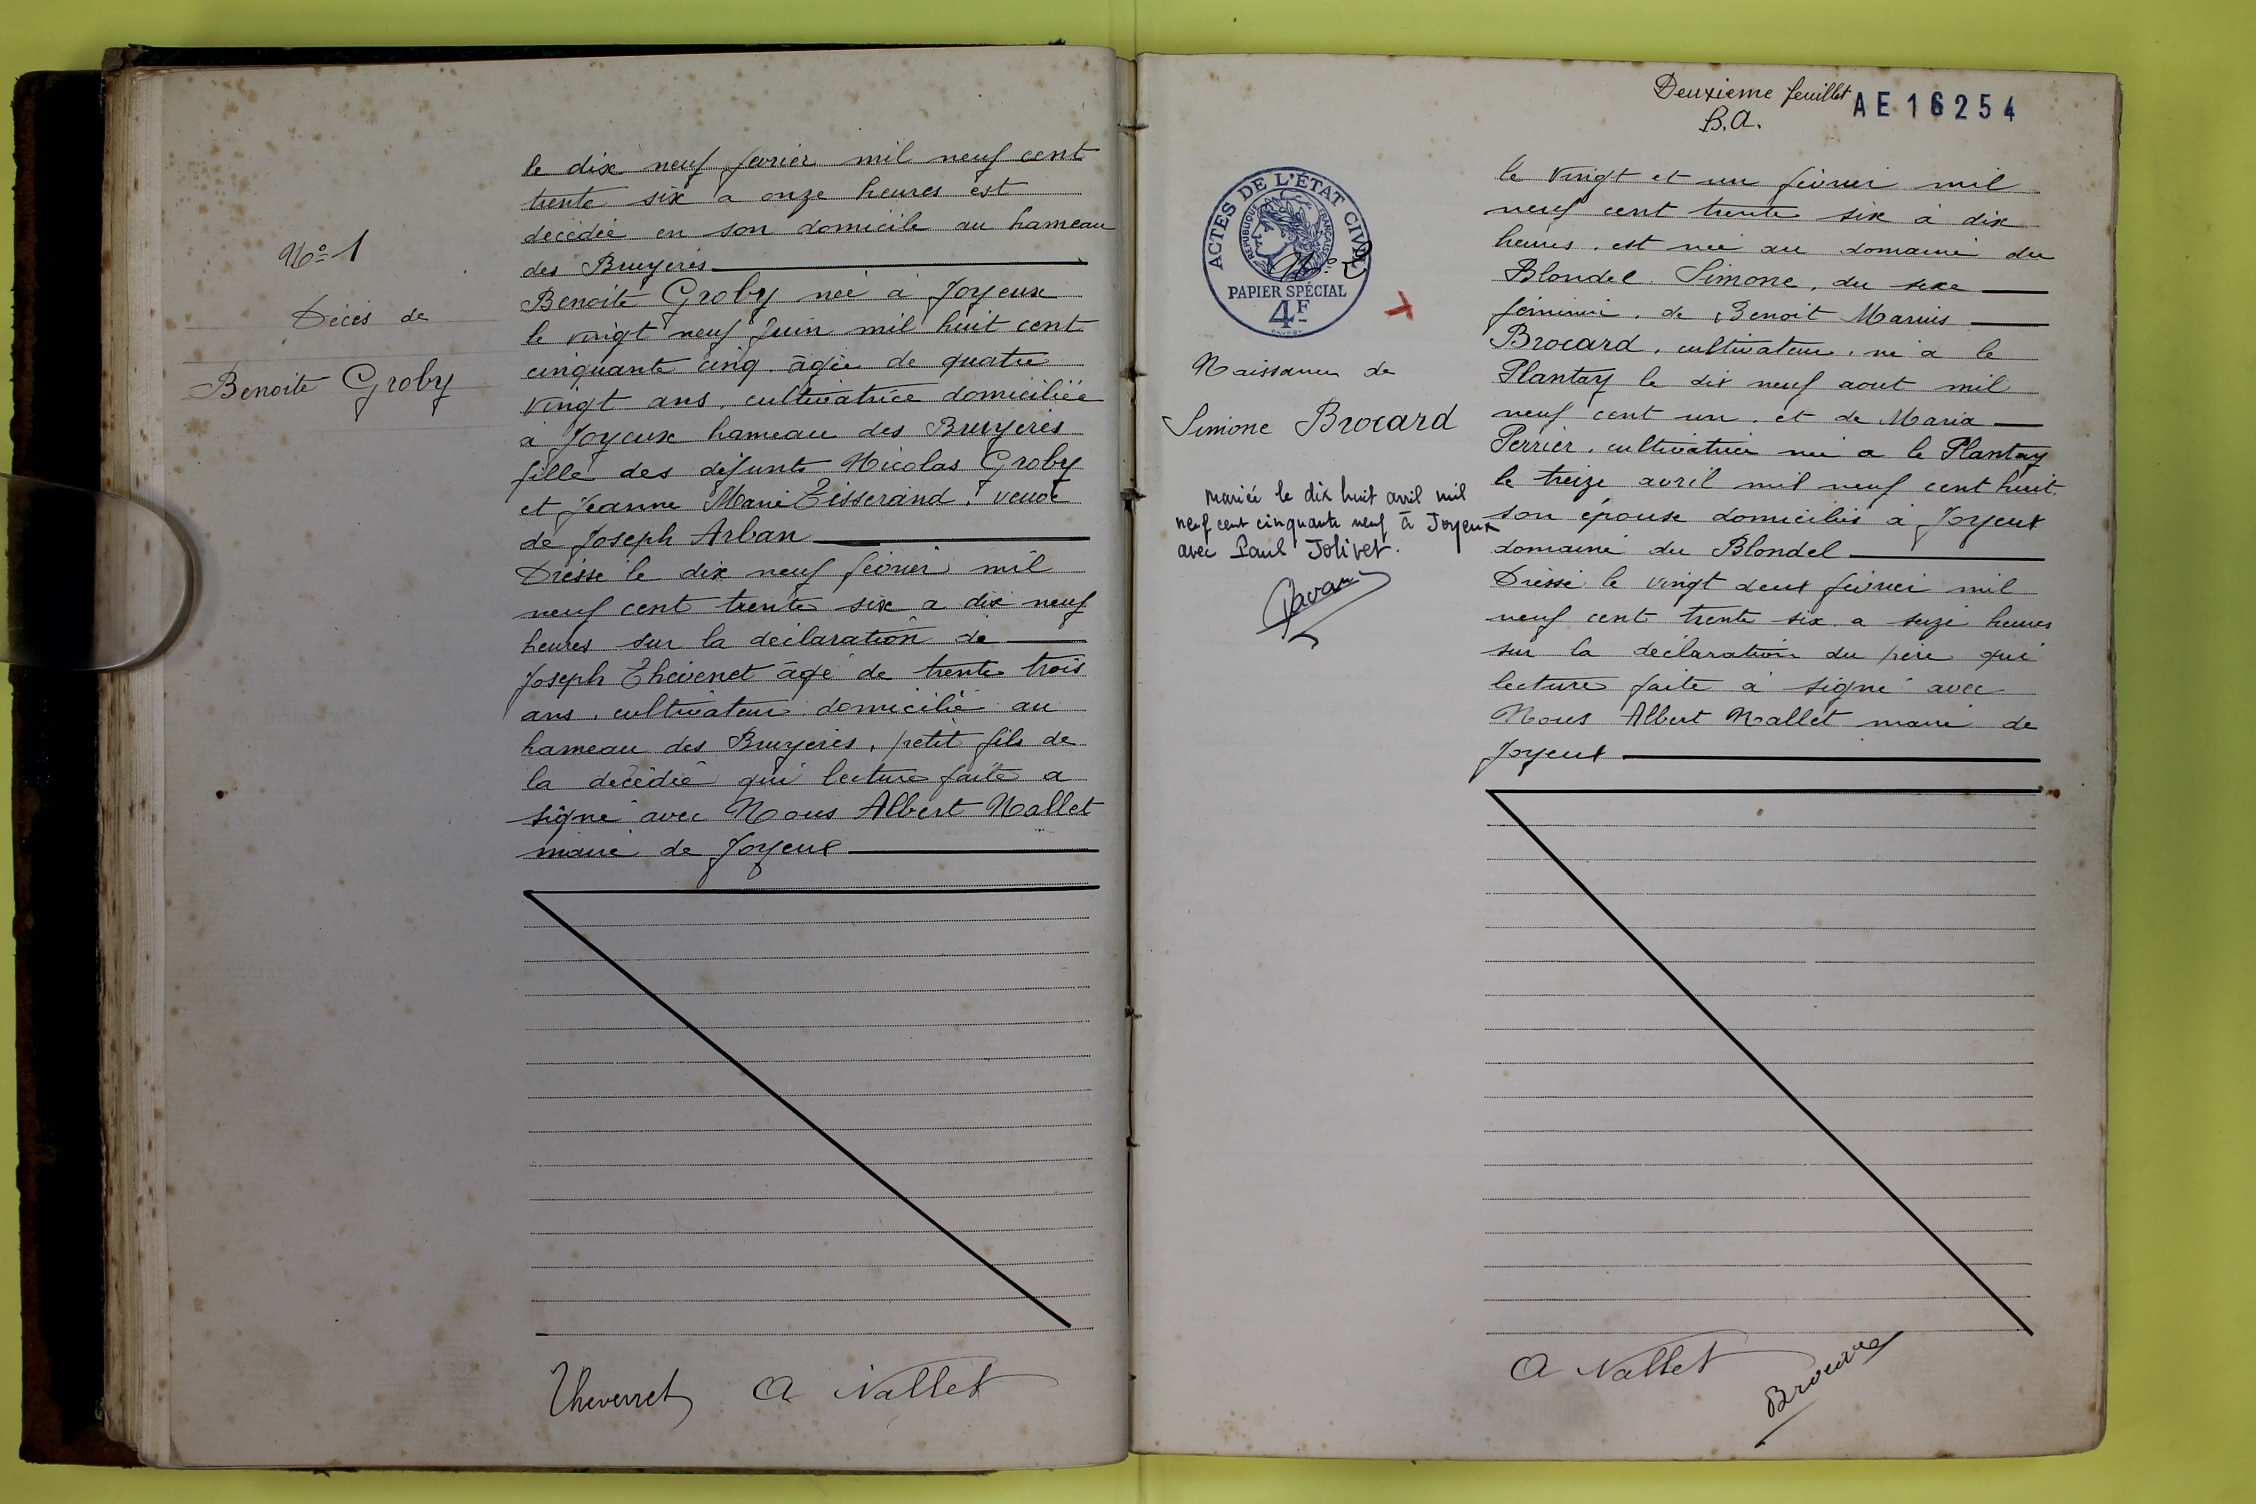 N° 1
Décès de
Benoite Groby
le dix neuf fevrier mil neuf cent
trente six à onze heures est
décédée en son domicile au hameau
des Bruyères
Benoite Groby née à Joyeux
le vingt neuf Juin mil huit cent
cinquante cinq. âgée de quatre
vingt ans, cultivatrice domiciliée
à Joyeux hameau des Bruyères
fille des défunts Nicolas Groby
et Jeanne Marie Tisserand, veuve
de Joseph Arban
Dressé le dix neuf février mil
neuf cent trente six a dix neuf
heures sur la déclaration de
Joseph Thévenet âgé de trente trois
ans, cultivateur domicilié au
hameau des Bruyères, petit fils de
la décédée qui lecture faite a
signé avec Nous Albert Nallet
maire de Joyeux
Thevenet A Nallet
Deuxieme feuillet AE 16254
B.A.
ACTES DE L'ÉTAT CIVIL
RÉPUBLIQUE FRANÇAISE
N° 2
PAPIER SPÉCIAL
4F
Naissance de
Simone Brocard
mariée le dix huit avril mil
neuf cent cinquante neuf à Joyeux
avec Paul Jolivet.
le vingt et un février mil
neuf cent trente six à dix
heures. est née au domaine du
Blondel. Simone, du sexe
féminin, de Benoit Marius
Brocard, cultivateur, né à le
Plantay le dix neuf aout mil
neuf cent un, et de Maria
Perrier, cultivatrice née a le Plantay
le treize avril mil neuf cent huit.
son épouse domiciliés à Joyeux
domaine du Blondel
Dressé le vingt deux février mil
neuf cent trente six a seize heures
sur la déclaration du père qui
lecture faite a signé avec
Nous Albert Nallet maire de
Joyeux
A Nallet